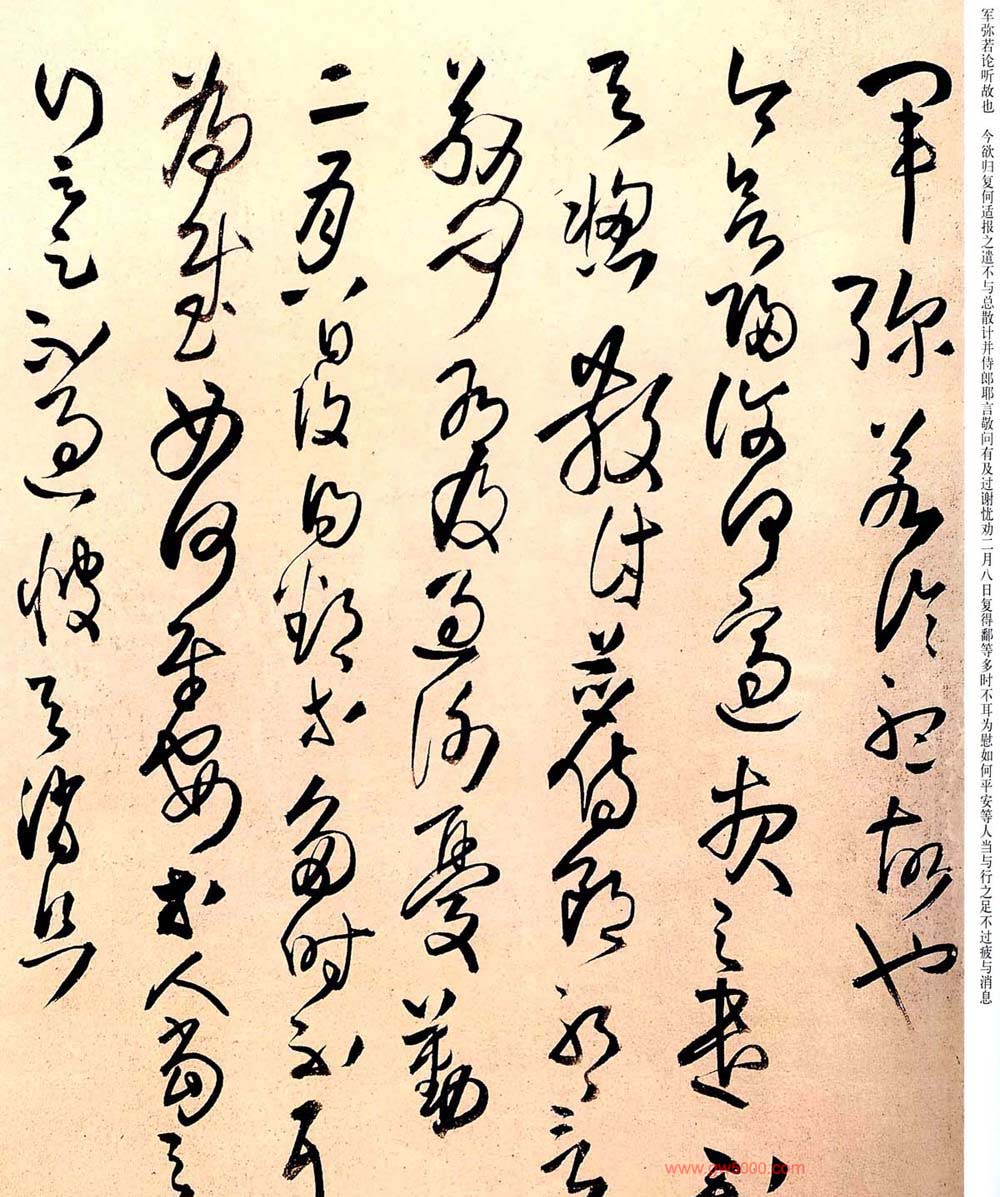 军弥若论听故也　今欲归复何适报之遣不与总散计并侍郎耶言敬问有及过谢忧劝二月八日复得鄱等多时不耳为慰如何平安等人当与行之足不过疲与消息
軍彌若論聽故也
今欲歸復何適報之遣不
與總散計並侍郎耶言
敬問有及過謝憂勤
二月八日復得鄱等多時不耳
為慰如何平安等人當與
行之足不過疲與消息
www.gw5000.com